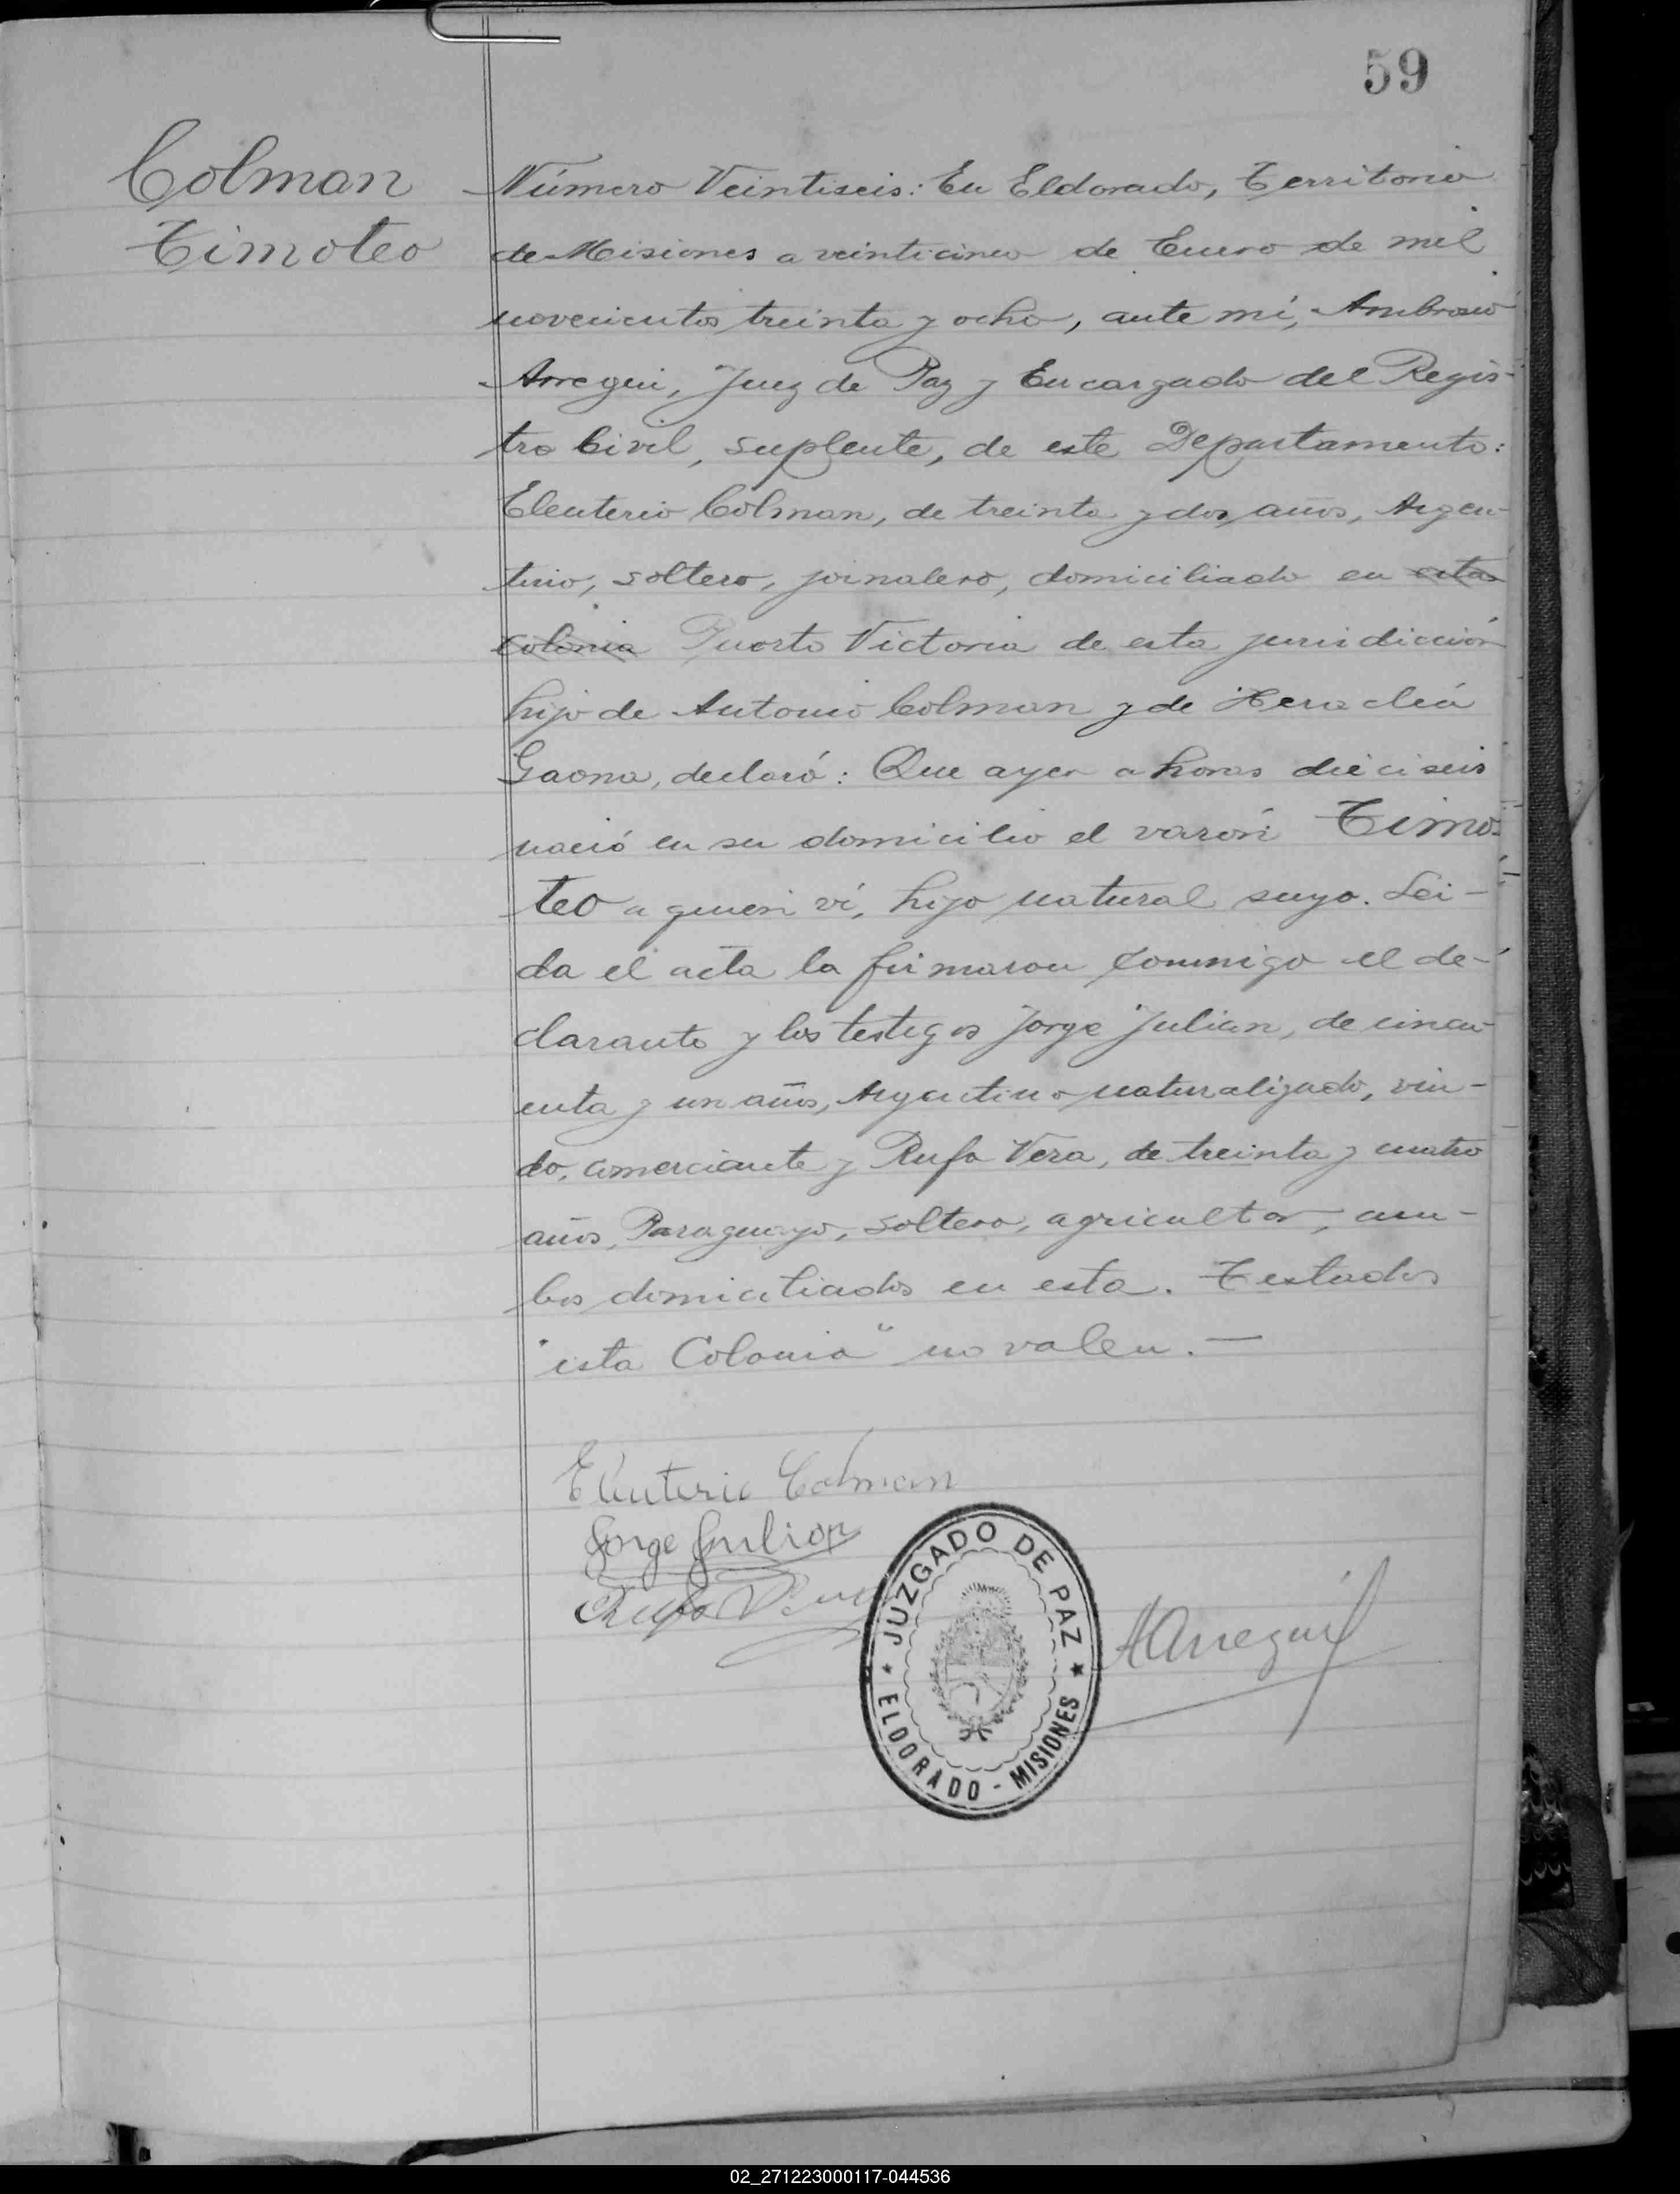 59
Colman
Timoteo
Número Veintiseis: En Eldorado, Territorio
de Misiones a veinticinco de Enero de mil
novecientos treinta y ocho, ante mí, Ambrosio
Arregui, Juez de Paz y Encargado del Regis-
tro Civil, suplente, de este Departamento:
Eleuterio Colman, de treinta y dos años, Argen-
tino, soltero, jornalero, domiciliado en esta
colonia Puerto Victoria de esta jurisdicción
hijo de Antonio Colman y de Heraclea
Gaona, declaró: Que ayer a horas dieciseis
nació en su domicilio el varón Timo-
teo a quien ví, hijo natural suyo. Lei-
da el acta la firmaron conmigo el de-
clarante y los testigos Jorge Julian, de cincu-
enta y un años, Argentino naturalizado, viu-
do, comerciante y Rufo Vera, de treinta y cuatro
años, Paraguayo, soltero, agricultor, am-
bos domiciliados en esta. Testados
"esta Colonia" no valen. —
Eleuterio Colman
Jorge Julian
Rufo Vera
AArregui
JUZGADO DE PAZ
ELDORADO - MISIONES
02_271223000117-044536